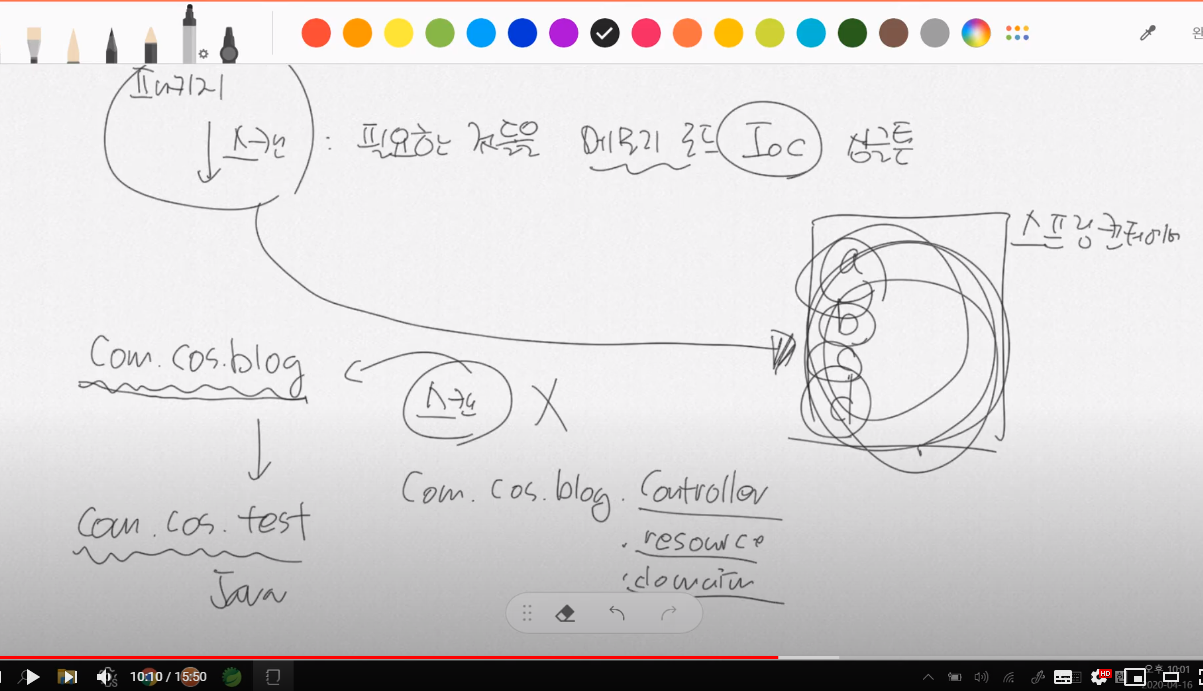 패키지
스캔 : 필요한 것들을 메모리 로드 IoC 싱글톤
스프링컨테이너
a
b
c
d
Com.cos.blog
스캔 X
Com.cos.blog.Controller
.resource
.domain
Com.cos.test
Java
10:10 / 15:50
HD
오후 10:01
2020-04-16